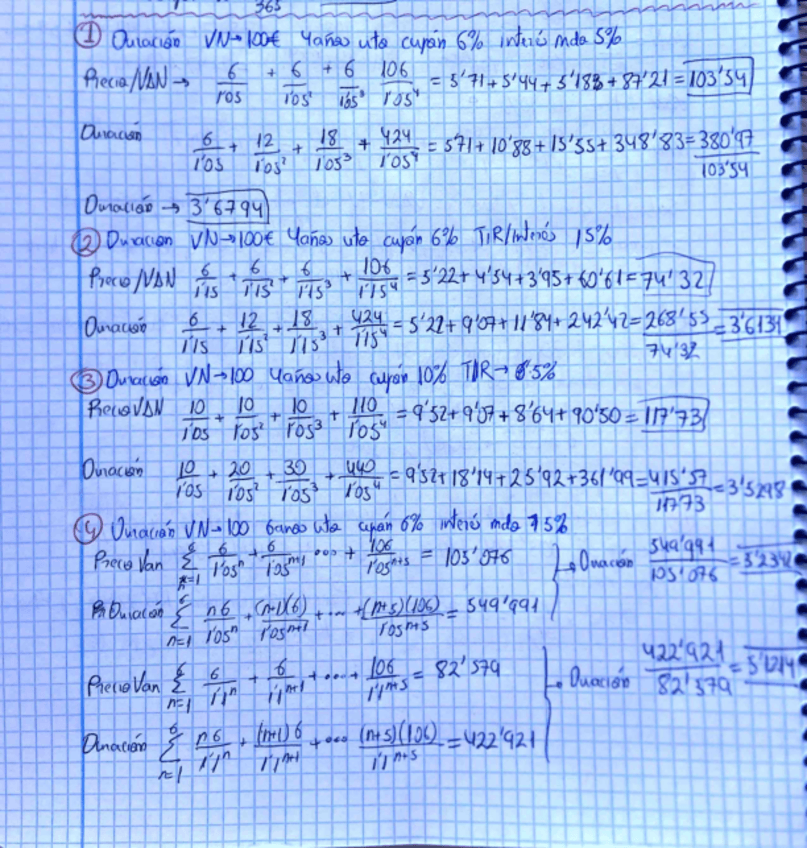 365
① Duración VN→100€ 4 años vto cupón 6% interés mdo 5%
Precio/VAN → 6/1'05 + 6/1'05² + 6/1'05³ 106/1'05⁴ = 5'71 + 5'44 + 5'183 + 87'21 = 103'54
Duración 6/1'05 + 12/1'05² + 18/1'05³ + 424/1'05⁴ = 571 + 10'88 + 15'55 + 348'83 = 380'97/103'54
Duración → 3'6794
② Duración VN→100€ 4 años vto cupón 6% TIR/interés 15%
Precio/VAN 6/1'15 + 6/1'15² + 6/1'15³ + 106/1'15⁴ = 5'22 + 4'54 + 3'95 + 60'61 = 74'32
Duración 6/1'15 + 12/1'15² + 18/1'15³ + 424/1'15⁴ = 5'22 + 9'07 + 11'84 + 242'42 = 268'55/74'32 = 3'6134
③ Duración VN→100 4 años vto cupón 10% TIR→ 5%
Precio VAN 10/1'05 + 10/1'05² + 10/1'05³ + 110/1'05⁴ = 9'52 + 9'07 + 8'64 + 90'50 = 117'73
Duración 10/1'05 + 20/1'05² + 30/1'05³ + 440/1'05⁴ = 9'52 + 18'14 + 25'92 + 361'99 = 415'57/117'73 = 3'5298
④ Duración VN→100 6 años vto cupón 6% interés mdo 5%
Precio Van ∑ 6 n=1 6/1'05ⁿ + 6/1'05ⁿ⁺¹ ... + 106/1'05ⁿ⁺⁵ = 105'076 → Duración 549'991/105'076 = 5'234
Duración ∑ 6 n=1 n6/1'05ⁿ + (n+1)(6)/1'05ⁿ⁺¹ + ... + (n+5)(106)/1'05ⁿ⁺⁵ = 549'991
Precio Van ∑ 6 n=1 6/1'1ⁿ + 6/1'1ⁿ⁺¹ + ... + 106/1'1ⁿ⁺⁵ = 82'579 → Duración 422'921/82'579 = 5'1214
Duración ∑ 6 n=1 n6/1'1ⁿ + (n+1)6/1'1ⁿ⁺¹ + ... (n+5)(106)/1'1ⁿ⁺⁵ = 422'921